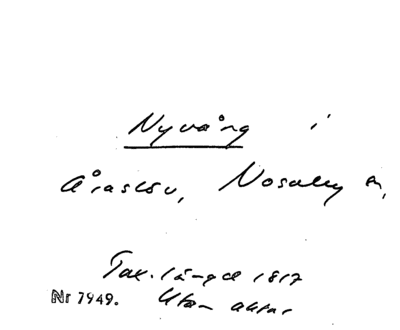 Nyvång i
Åraslöv, Nosaby sn,
Tax. längd 1817
Nr 7949. Utan aktnr